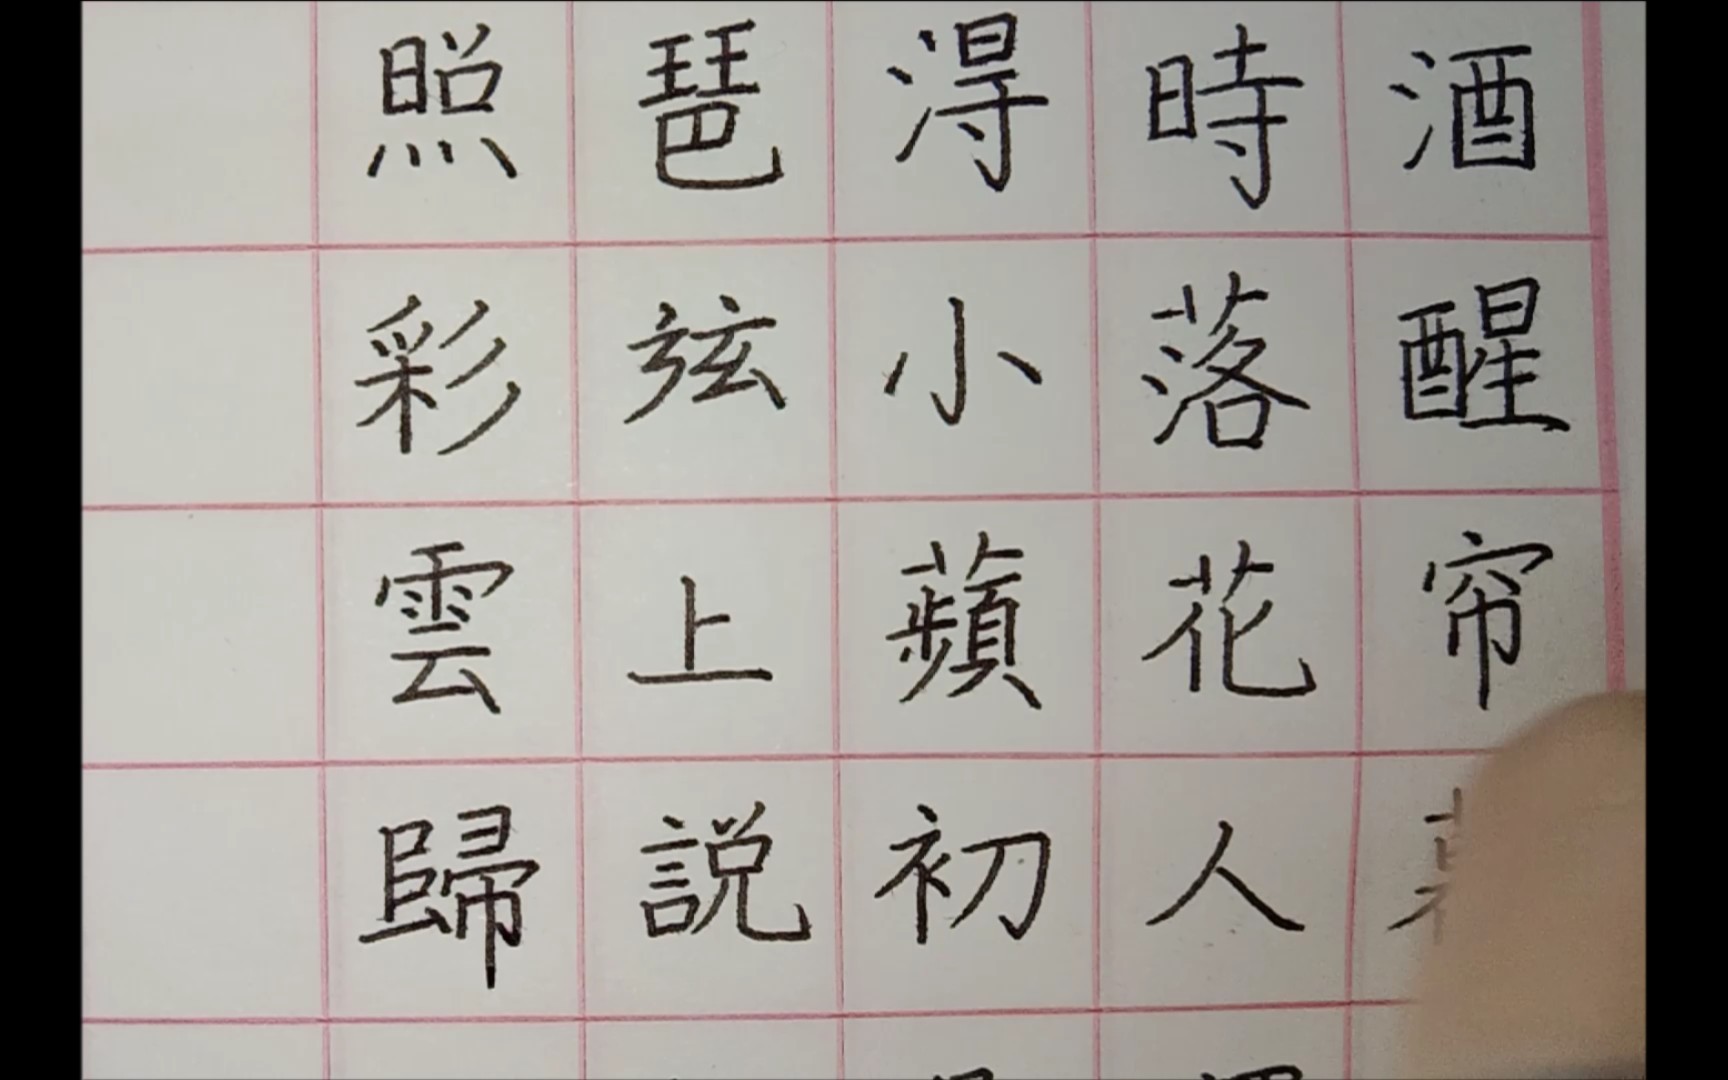 酒醒帘
時落花人
淂小蘋初
琵弦上説
照彩雲歸